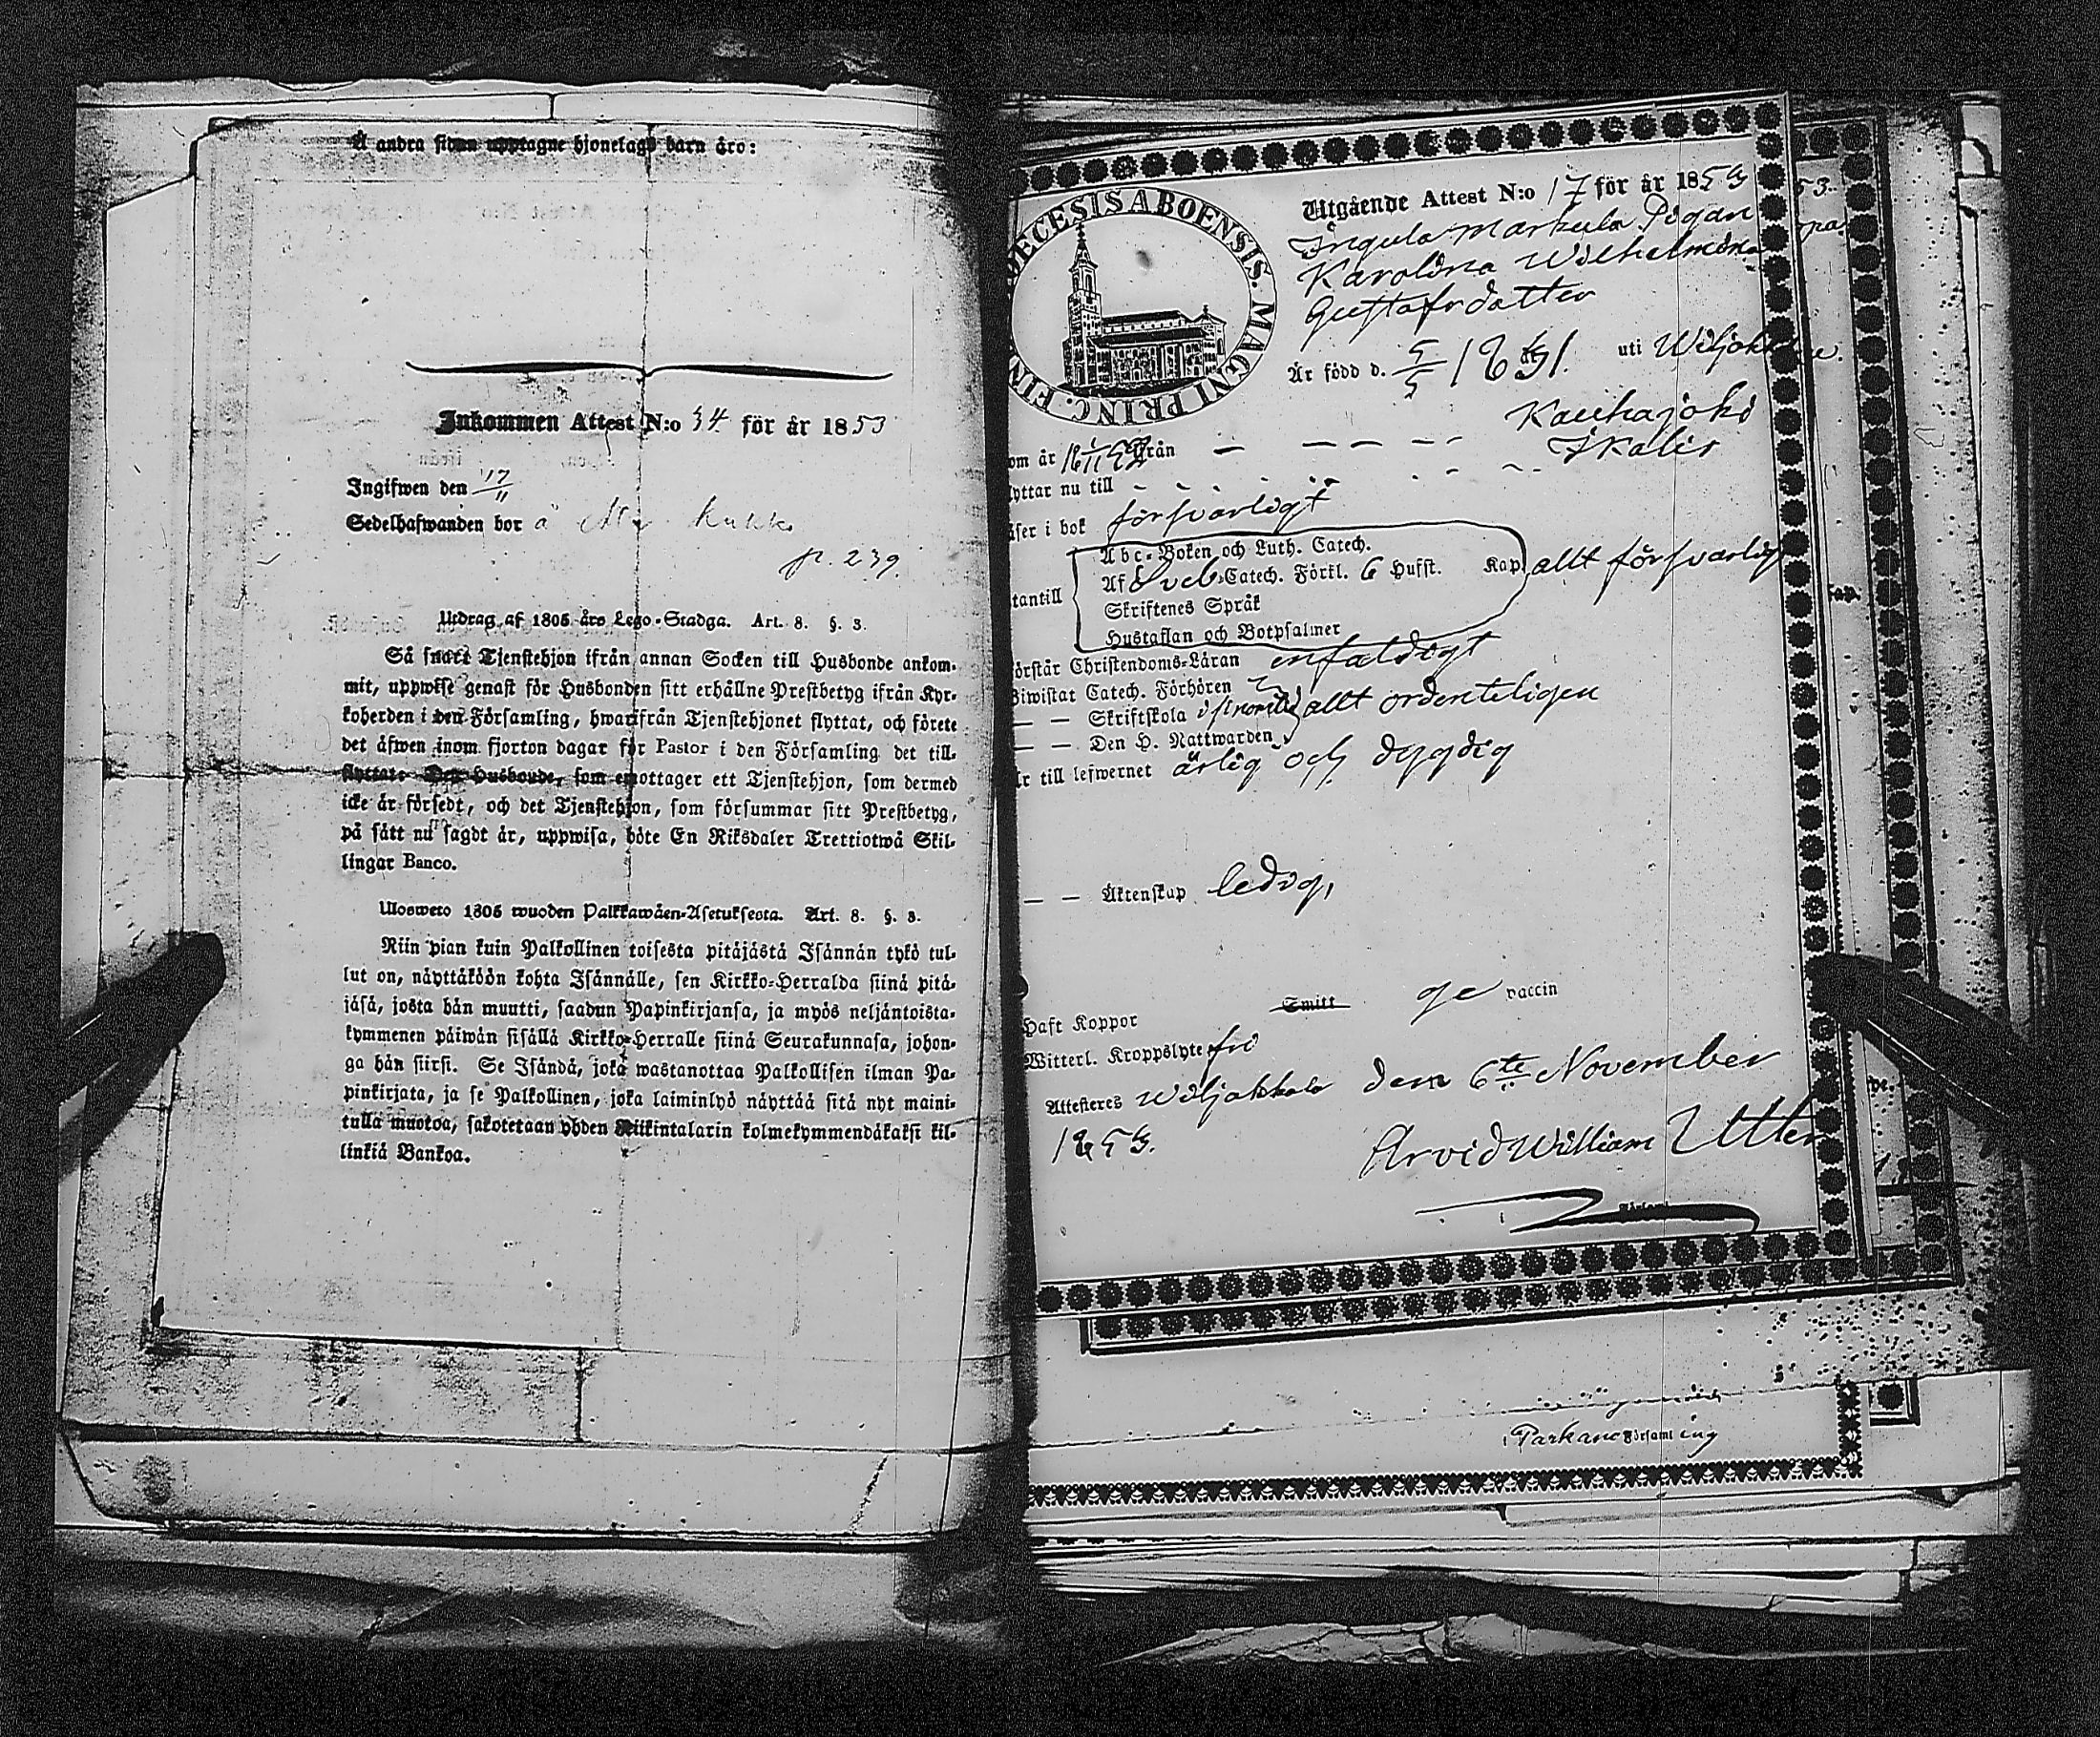 Å andra sidan upptagne hjonelags barn äro:
Inkommen Attest N:o 34 för år 1853
Ingifwen den 17/11
Sedelhafwanden bor å
p. 239.
Utdrag af 1805 års Lego-Stadga. Art. 8. §. 3.
Så snart Tjenstehjon ifrån annan Socken till Husbonde ankom-
mit, uppwise genast för Husbonden sitt erhållne Prestbetyg ifrån Kyr-
koherden i den Församling, hwarifrån Tjenstehjonet flyttat, och förete
det äfwen inom fjorton dagar för Pastor i den Församling det till-
flyttat. Den Husbonde, som emottager ett Tjenstehjon, som dermed
icke är försedt, och det Tjenstehjon, som försummar sitt Prestbetyg,
på sätt nu sagdt är, uppwisa, böte En Riksdaler Trettiotwå Skil-
lingar Banco.
Ulosweto 1805 wuoden Palkkawäen-Asetuksesta. Art. 8. §. 3.
Niin pian kuin Palkollinen toisesta pitäjästä Isännän tykö tul-
lut on, näyttäköön kohta Isännälle, sen Kirkko-Herralda siinä pitä-
jäsä, josta hän muutti, saadun Papinkirjansa, ja myös neljäntoista-
kymmenen päiwän sisällä Kirkko-Herralle siinä Seurakunnasa, johon-
ga hän siirsi. Se Isändä, joka wastanottaa Palkollisen ilman Pa-
pinkirjata, ja se Palkollinen, joka laiminlyö näyttää sitä nyt maini-
tulla muotoa, sakotetaan yhden Riikintalarin kolmekymmendäkaksi kil-
linkiä Bankoa.
DIECESIS ABOENSIS. MAGNI PRINC. FIN
Utgående Attest N:o 17 för år 1853
Ingula Markula Pigan
Karolina Wilhelmina
Gustafsdotter
Är född d. 5/5 1831. uti Wiljakkala
Kauhajoki
om år ifrån — — — — —
Ikalis
lyttar nu till
äser i bok försvarligt
Abc-Boken och Luth. Catech.
Af Sveb. Catech. Förkl. 6 Hufst. Kap. allt försvarligt
tantill
Skriftenes Språk
Hustaflan och Botpsalmer
örstår Christendoms-Läran enfaldigt
Biwistat Catech. Förhören
— — Skriftskola allt ordenteligen
— — Den H. Nattwarden
r till lefwernet ärlig och dygdig
— — Äktenskap ledig,
Haft Koppor Smitt ge vaccin
Witterl. Kroppslyte fri
Attesteres Wiljakkala dem 6te November
1853.
Arvid William Utter
Församl
i Parkano Församling